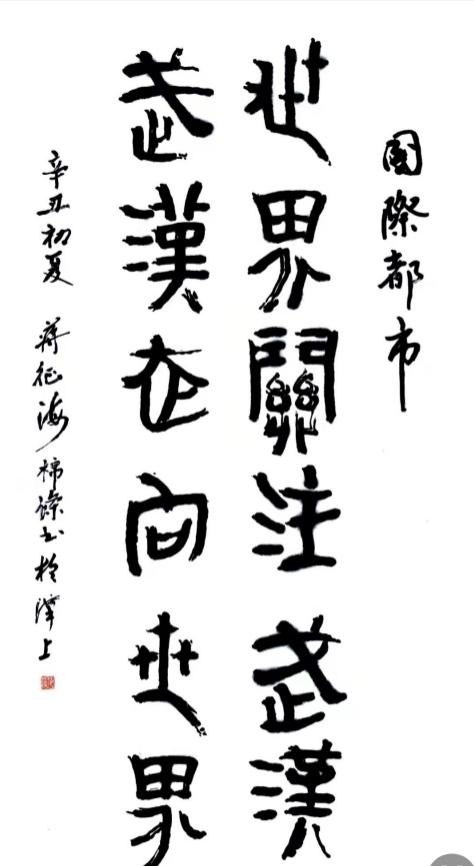 國際都市
世界關注武漢
武漢走向世界
辛丑初夏 蔣征海 书於漢上